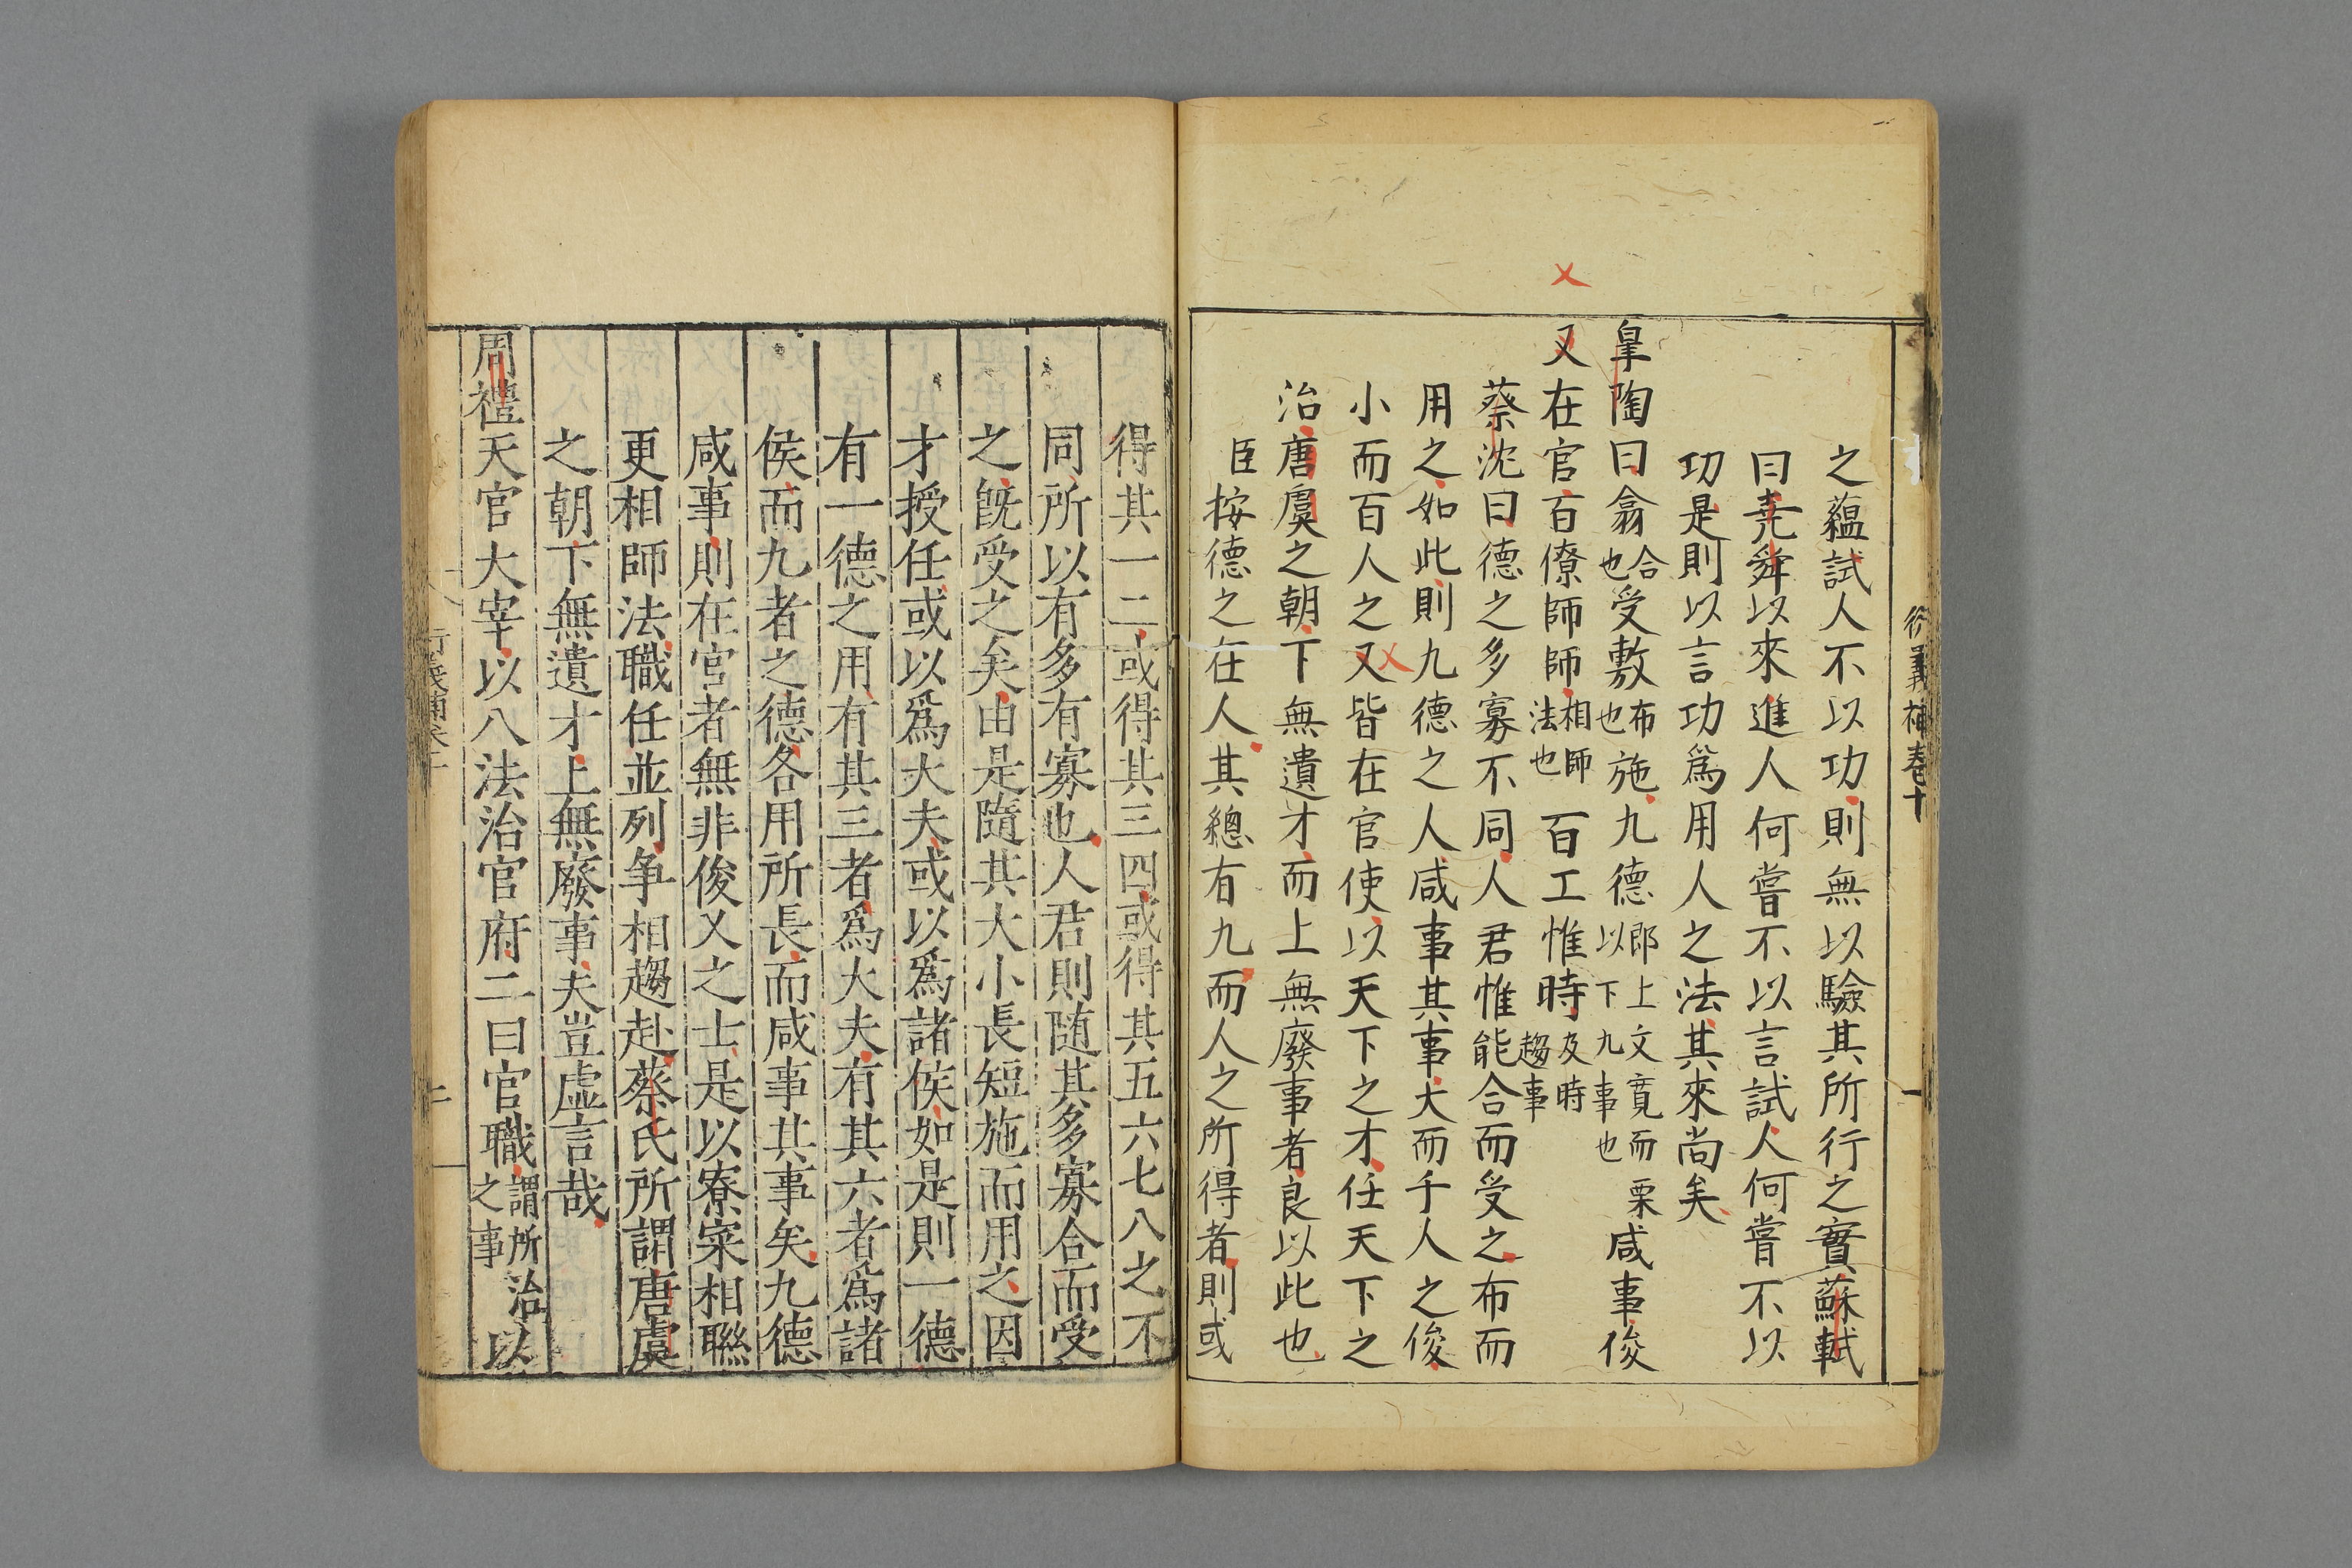 衍義補卷十
之蘊試人不以功則無以驗其所行之實蘇軾
曰堯舜以來進人何嘗不以言試人何嘗不以
功是則以言功爲用人之法其來尚矣
皐陶曰翕合也受敷布也施九德郎上文寛而栗以下九事也咸事俊
乂在官百僚師師相師法也百工惟時及時趨事
蔡沈曰德之多寡不同人君惟能合而受之布而
用之如此則九德之人咸事其事大而千人之俊
小而百人之乂皆在官使以天下之才任天下之
治唐虞之朝下無遺才而上無廢事者良以此也
臣按德之在人其總有九而人之所得者則或
得其一二或得其三四或得其五六七八之不
同所以有多有寡也人君則随其多寡合而受
之旣受之矣由是隨其大小長短施而用之因
才授任或以爲大夫或以爲諸侯如是則一德
有一德之用有其三者爲大夫有其六者爲諸
侯而九者之德各用所長而咸事其事矣九德
咸事則在官者無非俊乂之士是以寮寀相聯
更相師法職任並列争相趨赴蔡氏所謂唐虞
之朝下無遺才上無廢事夫豈虛言哉
周禮天官大宰以八法治官府二曰官職謂所治之事以